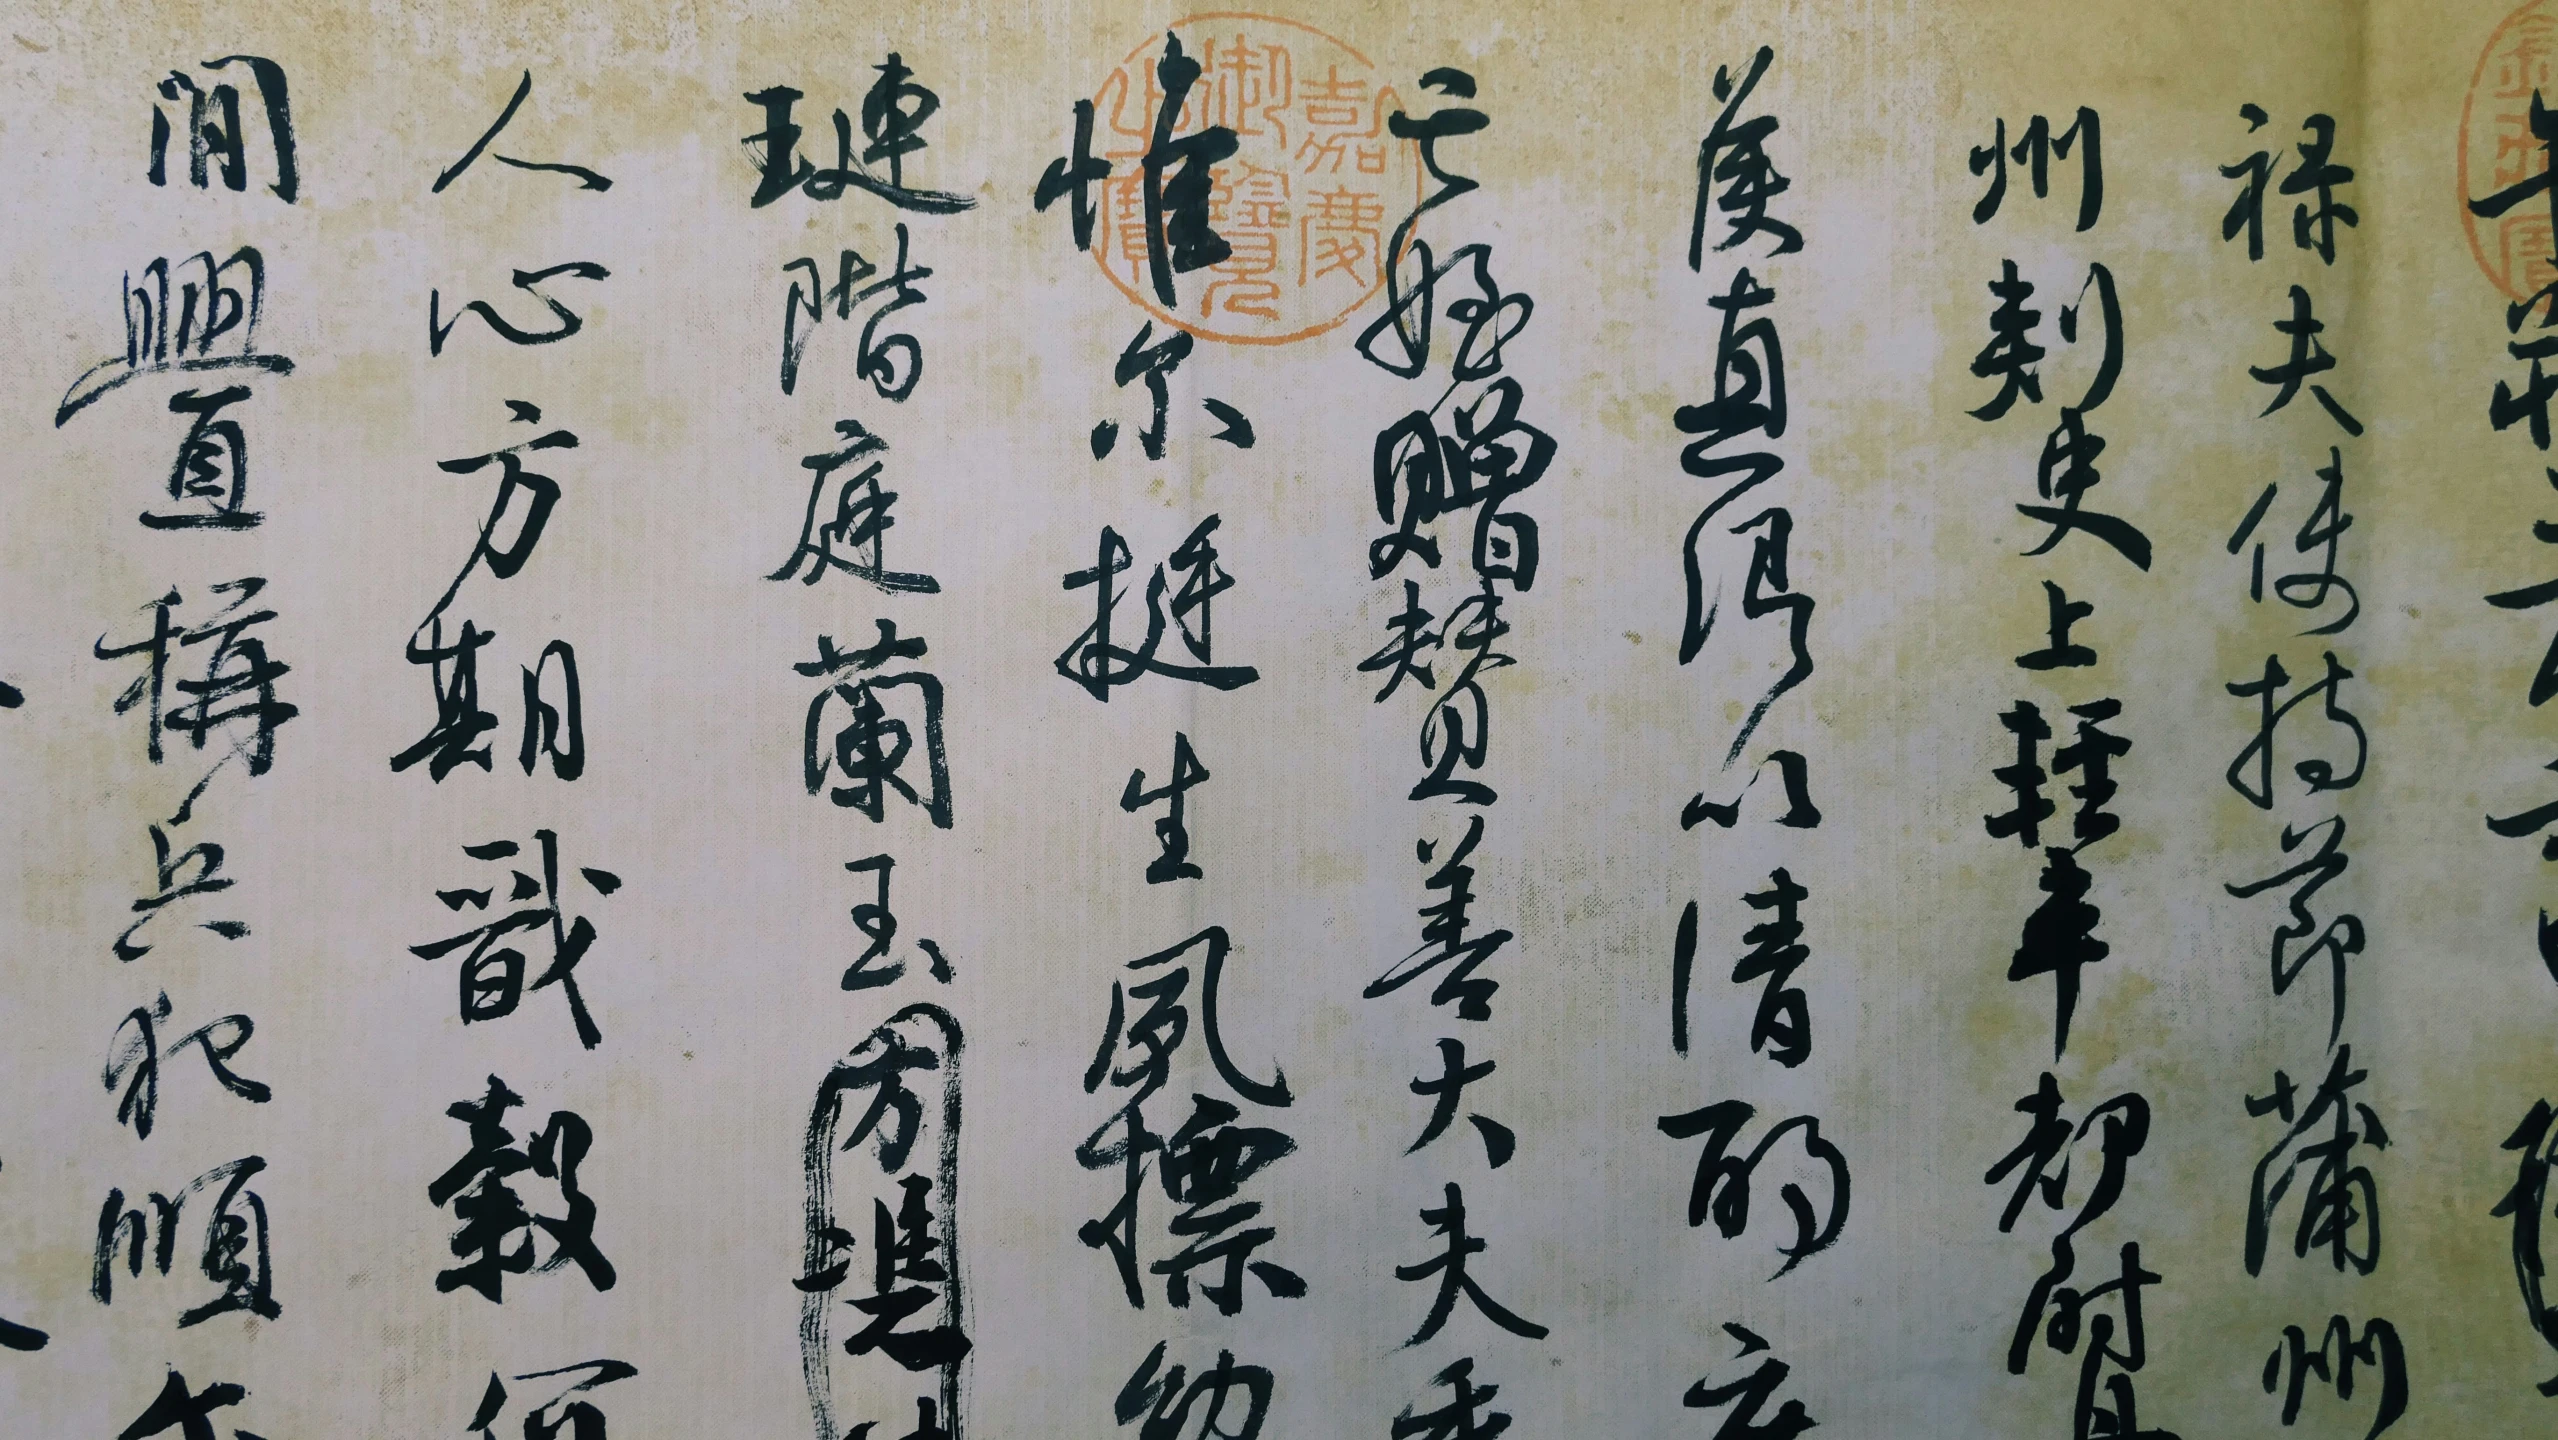 祿夫使持節蒲州
州刺史上輕車都尉
侯真卿以清酌庶
亡姪贈贊善大夫季
惟尔挺生夙標幼
璉階庭蘭玉方憑
人心方期戩穀何
閒釁稱兵犯順尔
嘉慶御覽之寶